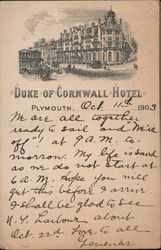 DUKE OF CORNWALL HOTEL
PLYMOUTH, Oct. 11th 1903
We are all together
ready to sail and We're
off "1 at 9 A.M. to
morrow. My life is sand
as we do not start at
6 A.M. Hope you will
get this before I arrive
I shall be glad to see
N.Y. Harbour about
Oct. 22nd love to all